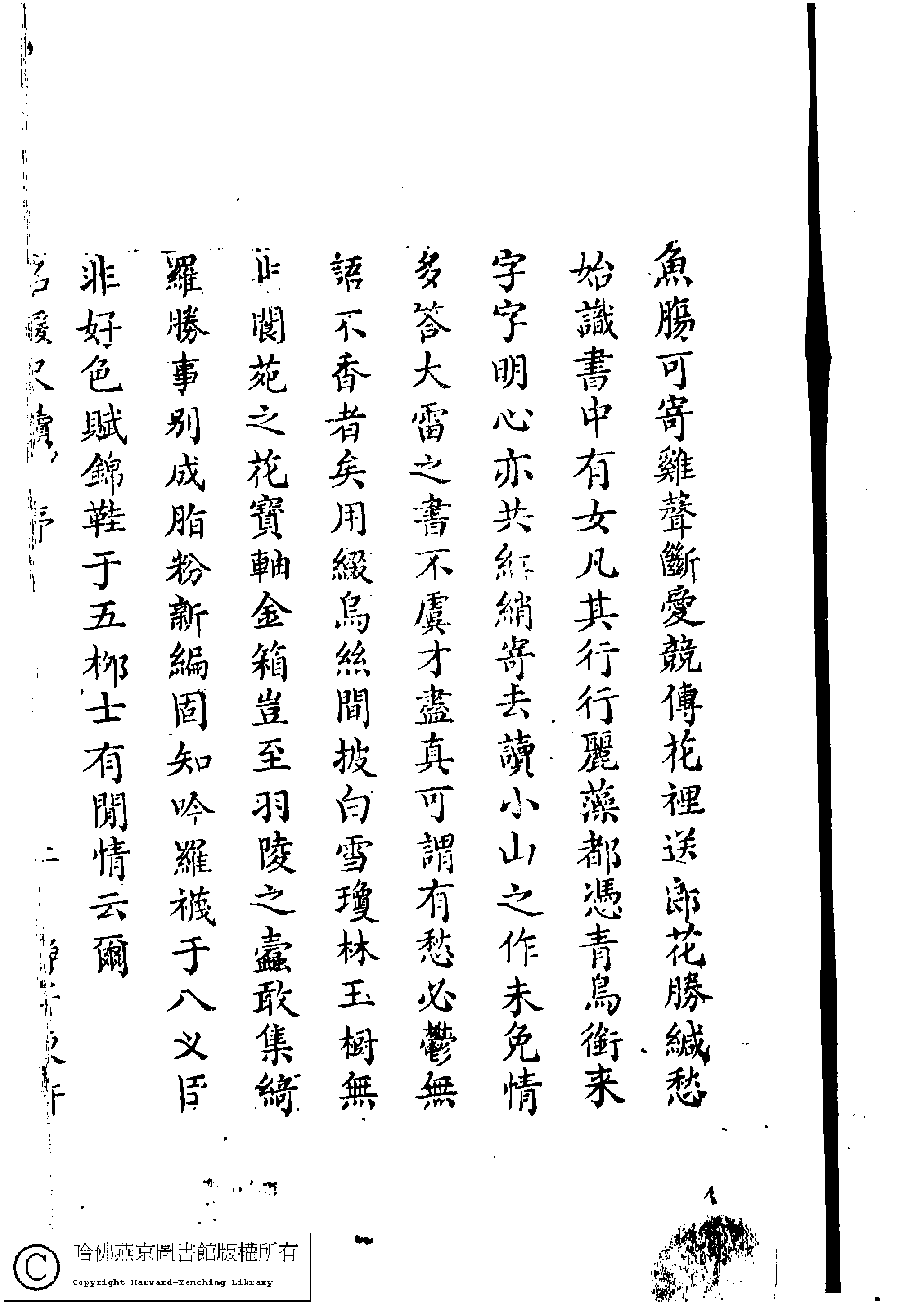 魚腸可寄雞聲斷愛競傳花裡送郎花勝緘愁
始識書中有女凡其行行麗藻都憑青鳥銜来
字字明心亦共紅綃寄去讀小山之作未免情
多答大雷之書不虞才盡真可謂有愁必鬱無
語不香者矣用綴烏絲間披白雪瓊林玉樹無
非閬苑之花寶軸金箱豈至羽陵之蠹敢集綺
羅勝事别成脂粉新編固知吟羅襪于八乂臣
非好色賦錦鞋于五桞士有閒情云爾
名媛尺牘 序 二 靜寄東軒
哈佛燕京圖書館版權所有
Copyright Harvard-Yenching Library